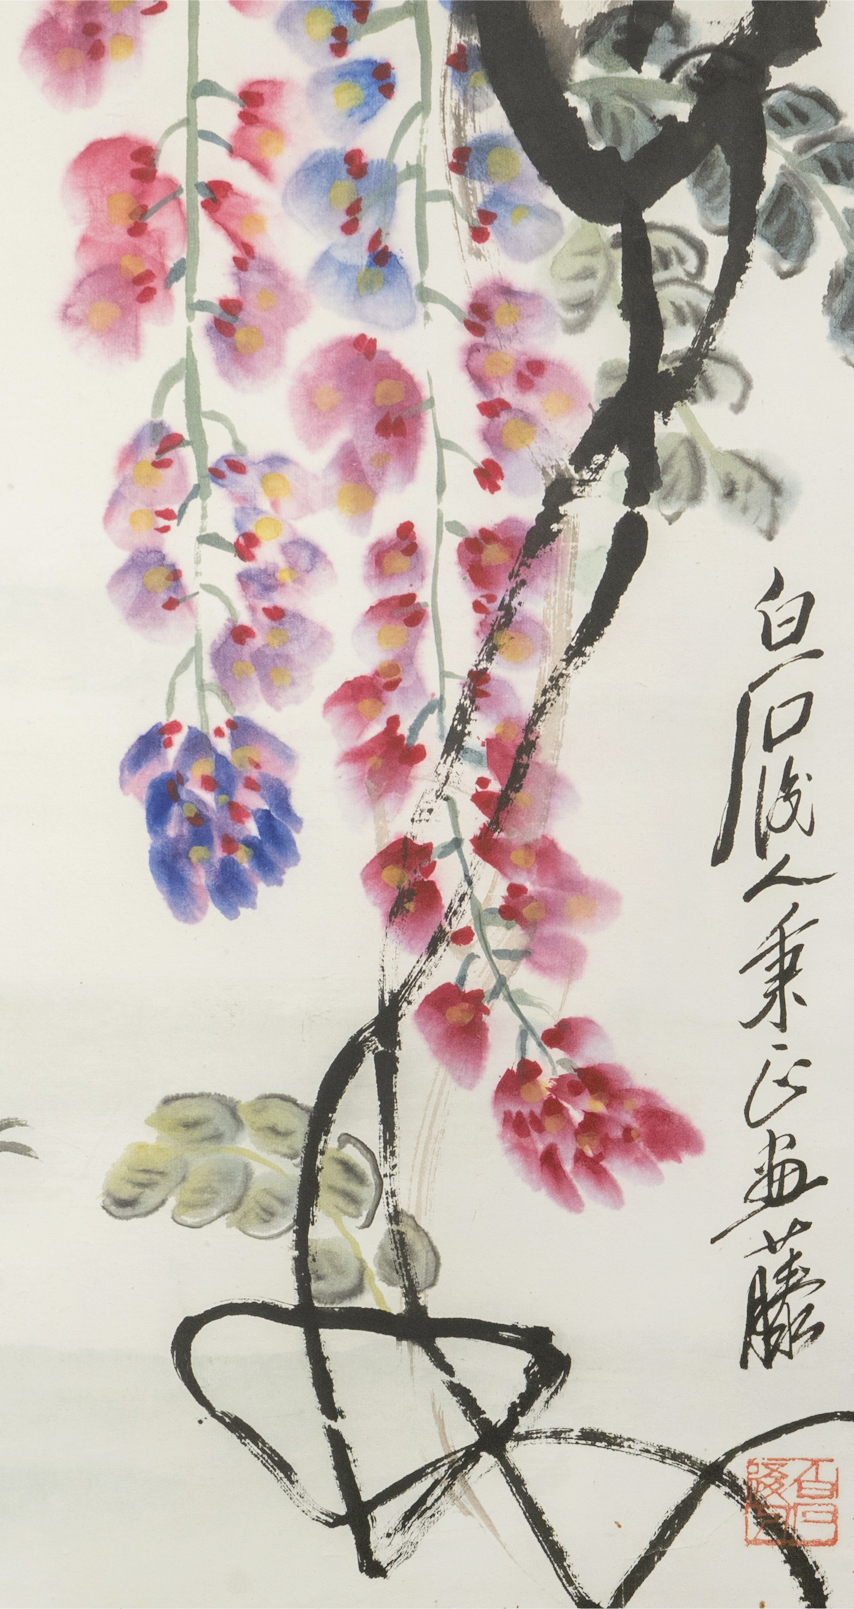 白石後人秉正画藤
白石
後人